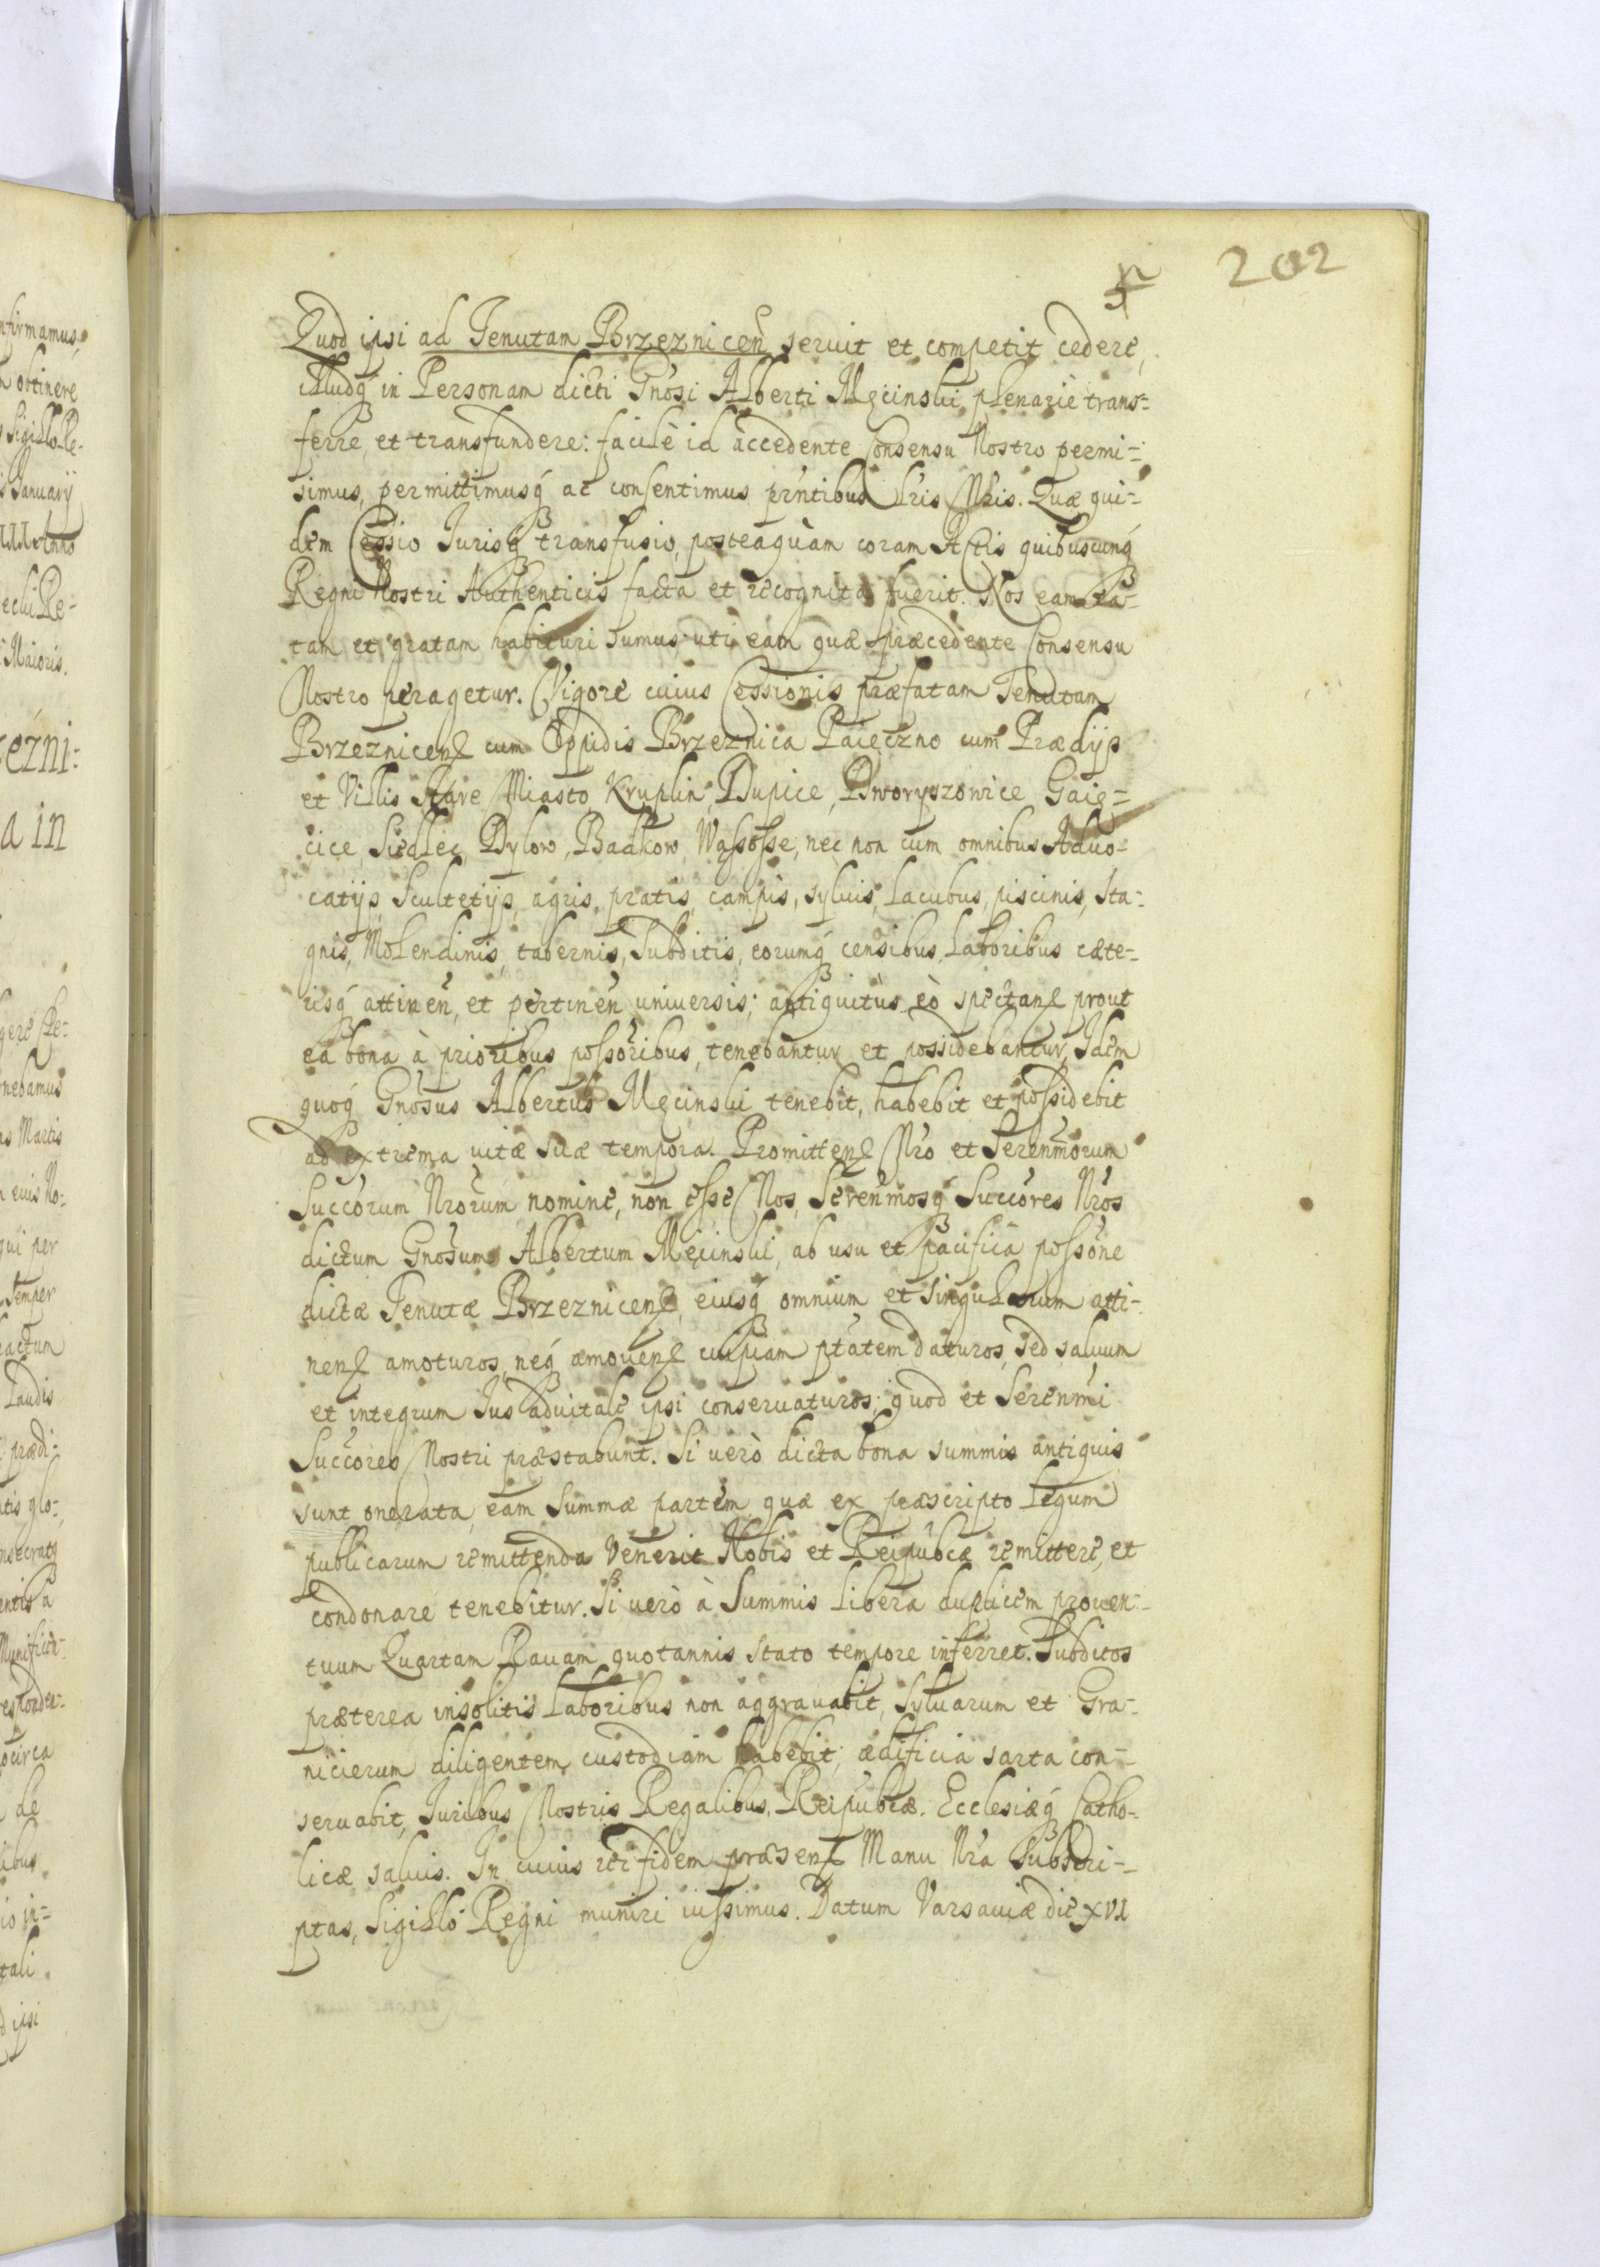 202
Quod ipsi ad Tenutam Brzeznicen̄ seruit et competit cedere,
illudq́ in Personam dicti Gnosi Alberti Męcinski plenariè trans-
ferre, et transfundere: facilè id accedente Consensu Nostro permi-
simus, permittimusq́ ac consentimus prńtibus Lris Nris. Quæ qui-
dem Cessio Jurisq́ transfusio, posteaquàm coram Actis quibuscunq́
Regni Nostri Authenticis facta et recognita fuerit. Nos eam ra-
tam et gratam habituri sumus uti eam quæ præcedente Consensu
Nostro peragetur. Vigore cuius Cessionis præfatam Tenutam
Brzeznicens cum Oppidis Brzeznica Paięczno cum Prædijs
et Villis Stare Miasto, Kruplin, Dupice, Dworyszowice Gaię-
cice, Siedlec, Dylow, Badkow, Wąsosse, nec non cum omnibus Aduo-
catijs Scultetijs, agris, pratis, campis, syluis, Lacubus, piscinis, sta-
gnis, Molendinis, tabernis, Subditis, eorumq́ censibus, Laboribus cæte-
risq́ attinen̄, et pertinen̄ uniuersis; antiquitùs eò spectans prout
ea bona à prioribus possoribus, tenebantur et possidebantur, Idem
quoq́ Gnosus Albertus Męcinski tenebit, habebit et possidebit
ad extrema uitæ suæ tempora. Promittens Nro et Serenmorum
Succorum Nrorum nomine, non esse Nos, Serenmosq́ Succores Nros
dictum Gnosum Albertum Męcinski, ab usu et pacifica possone
dictæ Tenutæ Brzeznicens, eiusq́ omnium et singulorum atti-
nens amoturos, neq́ amouens cuipiam ptatem daturos, sed saluum
et integrum Jus aduitale ipsi conseruaturos; quod et Serenmi
Succores Nostri præstabunt. Si uerò dicta bona summis antiquis
sunt onerata, eam Summæ partem, quæ ex præscripto Legum
publicarum remittenda Venerit Nobis et Reipubcæ remittere, et
condonare tenebitur. Si uerò à Summis libera duplicem prouen-
tuum Quartam Rauam quotannis stato tempore inferret. Subditos
præterea insolitis Laboribus non aggrauabit, Syluarum et Gra-
nicierum diligentem custodiam habebit; ædificia sarta con-
seruabit, Juribus Nostris Regalibus, Reipubcæ. Ecclesiæq́ Catho-
licæ saluis. In cuius rei fidem præsens Manu Nra Subscri-
ptas, Sigillo Regni muniri iussimus. Datum Varsauiæ die XVI